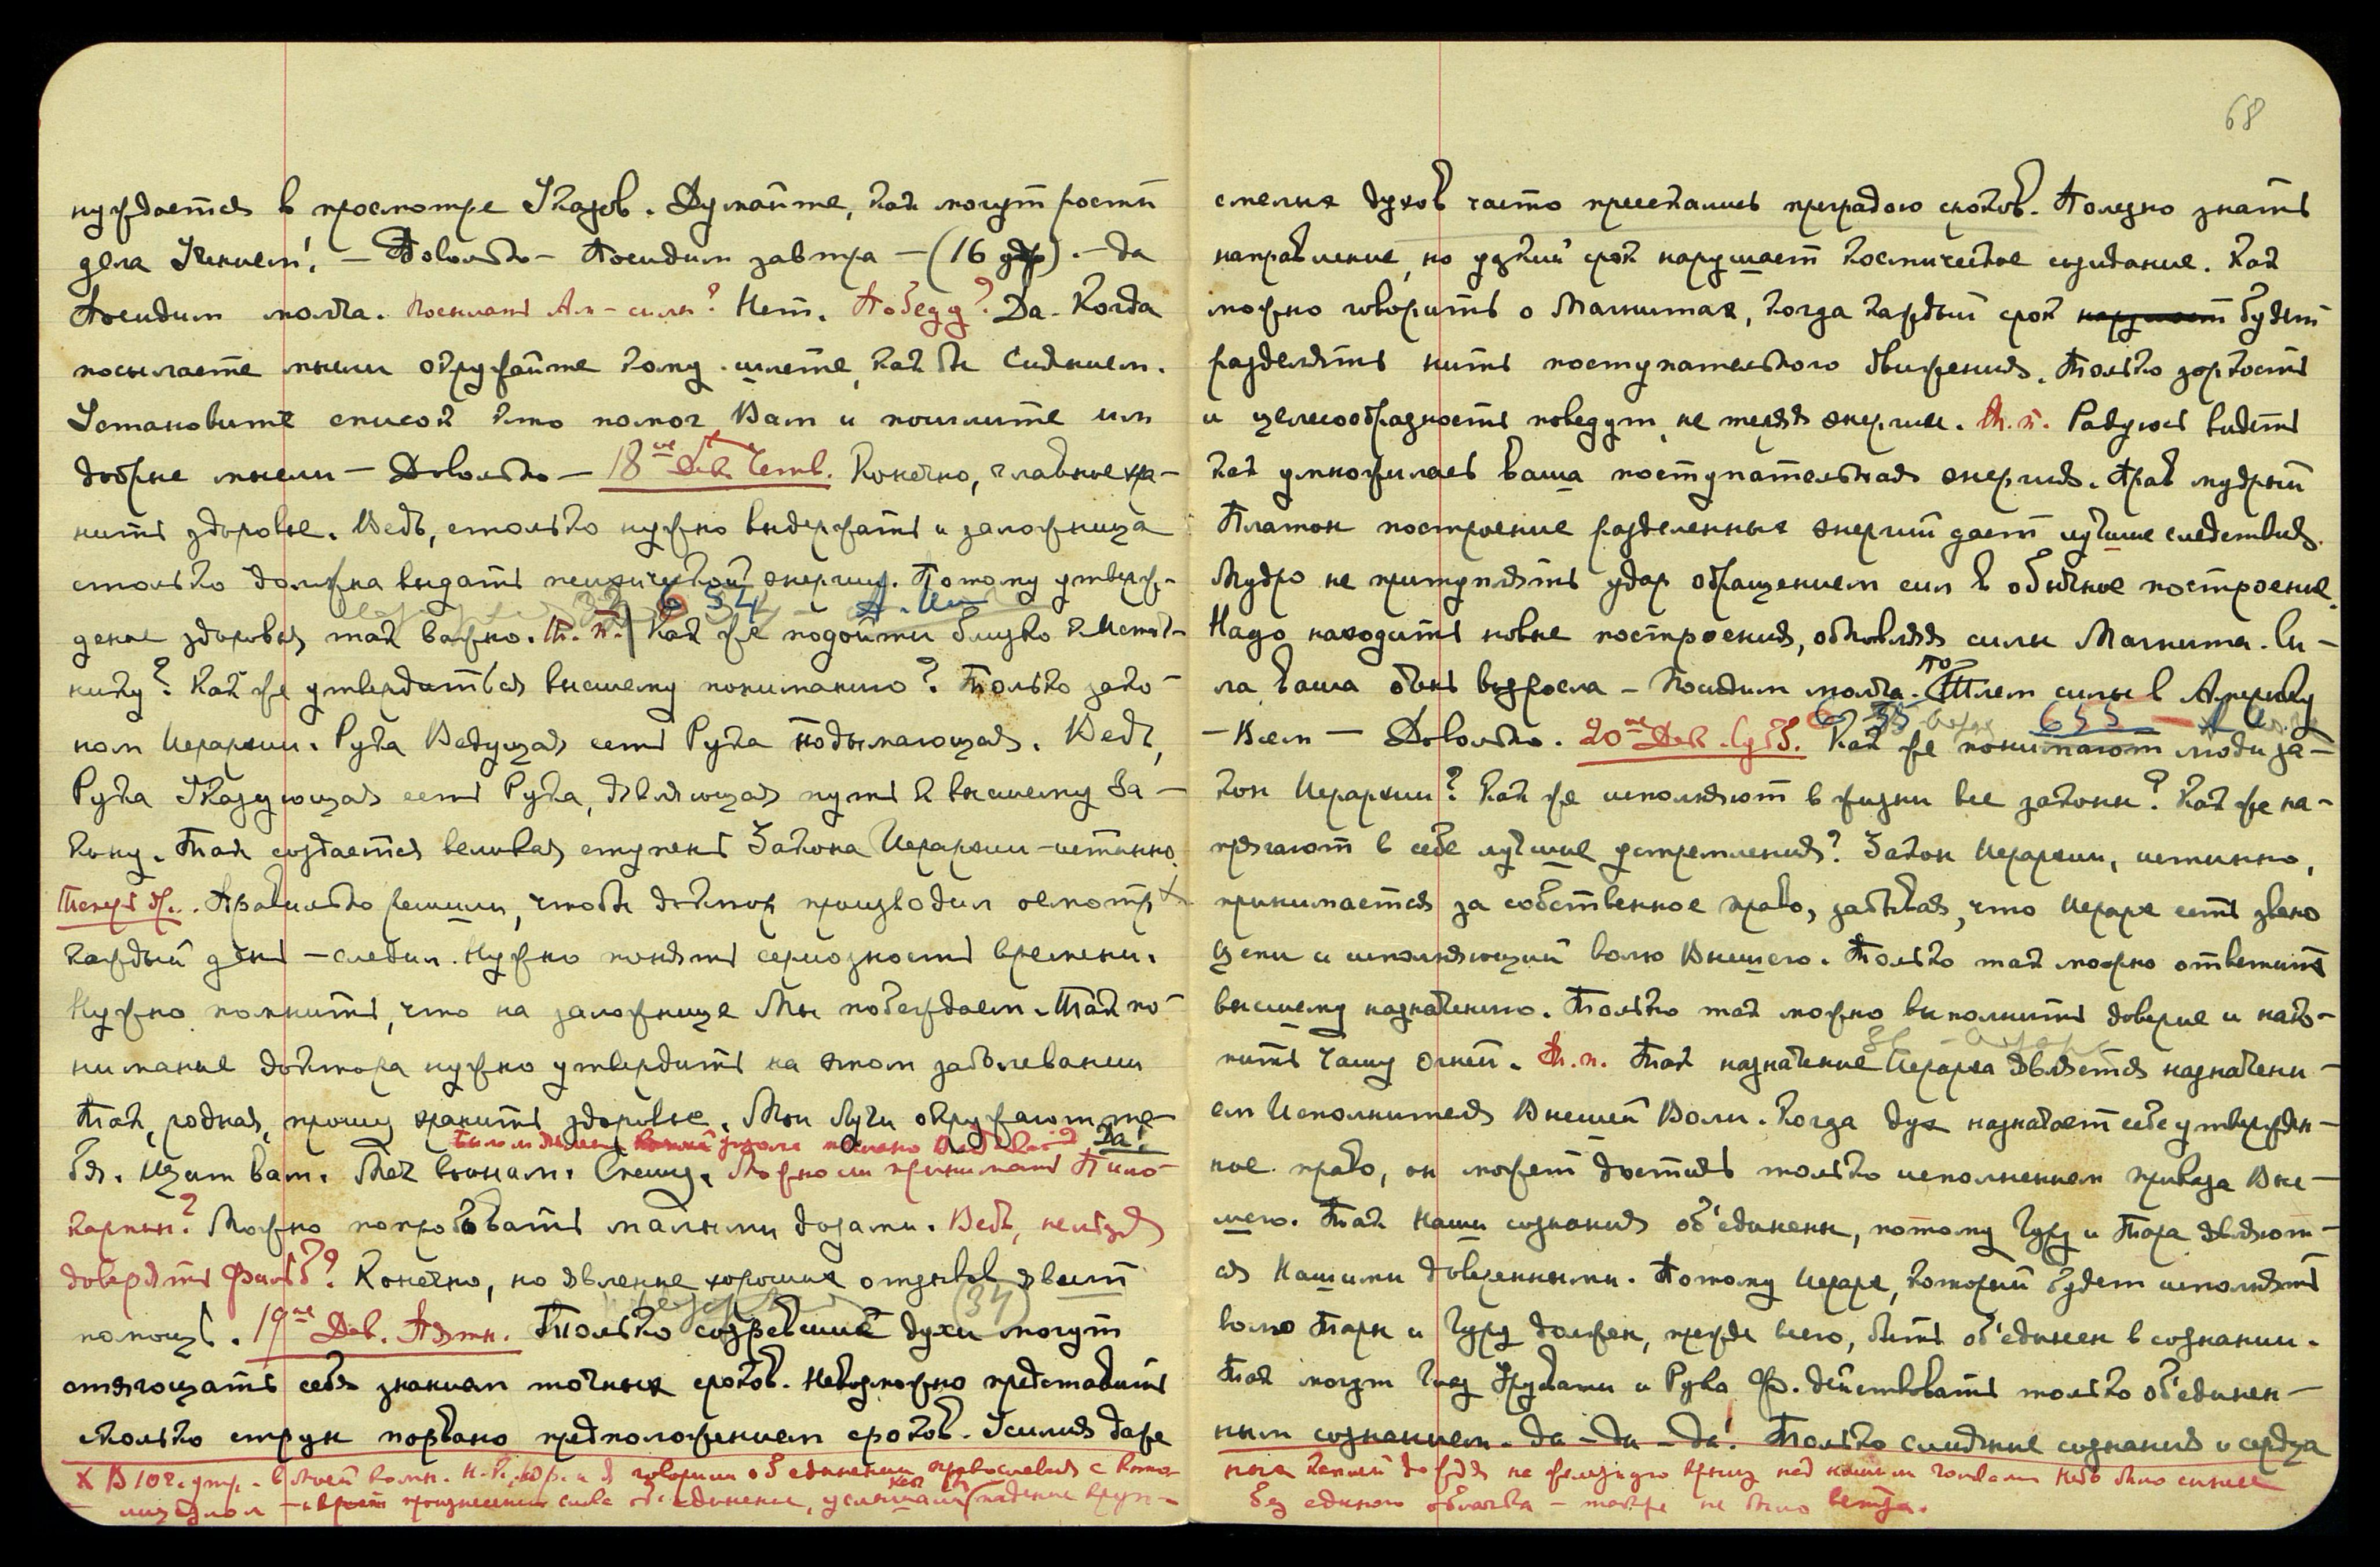 нуждается в просмотре Указов. Думайте, как могут рости
дела Учением! — Довольно — Посидим завтра — (16 дек) . — да
Посидим молча. Посылать Ам - силы? Нет. Победу? Да. Когда
посылаете мысли окружайте кому шлете, как бы Сиянием.
Установите список кто помог Вам и пошлите им
добрые мысли — Довольно — 18ое Дек. Четв. Конечно, главное хра-
нить здоровье. Ведь, столько нужно выдержать и заложница
столько должна выдать психической энергии. Потому утверж-
32 654
дение здоровья так важно. Т. п. Как же подойти близко к Источ-
нику? Как же утвердиться высшему пониманию? Только зако-
ном Иерархии. Рука Ведущая есть Рука подымающая. Ведь,
Рука Указующая есть Рука, являющая путь к высшему За-
кону. Так создается великая ступень Закона Иерархии - истинно.
Теперь др.. Правильно решили, чтобы доктор производил осмотр X
каждый день — следил. Нужно понять серьозность времени.
Нужно помнить, что на заложнице Мы побеждаем. Так по-
нимание доктора нужно утвердить на этом заболевании
Так, родная, прошу хранить здоровье. Мои Лучи окружают те-
Да!
бя. Щит вам. Меч врагам. Спешу. Можно ли принимать Пило-
карпин? Можно попробовать малыми дозами. Ведь, нельзя
доверять Фильб? Конечно, но явление хороших отзывов явит
(34)
помощь. 19ое Дек. Пятн. Только созревшие духи могут
отягощать себя знанием точных сроков. Невозможно представить
сколько струн порвано предположением сроков. Усилия даже
X В 10 ч. утр. в моей комн. Н.К., Юр. и я говорили об единении православия с като-
лицизмом — произнесении слова об'единение, услышали падение круп-
68
смелых духов часто пресекались преградою сроков. Полезно знать
направление, но узкий срок нарушает космическое созидание. Как
можно говорить о Магнитах, когда каждый срок нарушает будет
разделять нить поступательного движения. Только зоркость
и целесообразность поведут, не теряя энергии. Т. п. Радуюсь видеть
как умножилась ваша поступательная энергия. Прав мудрый
Платон построение разделенных энергий дает лучшие следствия.
Мудро не притуплять удар обращением сил в обычное построение.
Надо находить новые построения, обновляя силы Магнита. Си-
ла ваша очень возросла — Посидим молча. Шлем силы в Америку
655
— Всем — Довольно. 20ое Дек. Суб. Как же понимают люди за-
кон Иерархии? Как же исполняют в жизни все законы? Как же на-
прягают в себе лучшие устремления? Закон Иерархии, истинно,
принимается за собственное право, забывая, что Иерарх есть звено
цепи и исполняющий волю Высшего. Только так можно ответить
высшему назначению. Только так можно выполнить доверие и напол-
нить чашу огней. Т. п. Так назначение Иерарха является назначени-
ем Исполнителя Высшей Воли. Когда дух назначает себе утвержден-
ное право, он может достичь только исполнением приказа Выс-
шего. Так Наши сознания об'единены, потому Гуру и Тара являют-
ся Нашими доверенными. Потому Иерарх, который будет исполнять
волю Тары и Гуру должен, прежде всего, быть об'единен в сознании.
Так могут Гиез Зруками и Рука Ф. действовать только об'единен-
ным сознанием. Да — да — да! Только слияние сознания и сердца
ных капель дождя на железную крышу над нашими головами небо было синее
без единого облачка — также не было ветра.